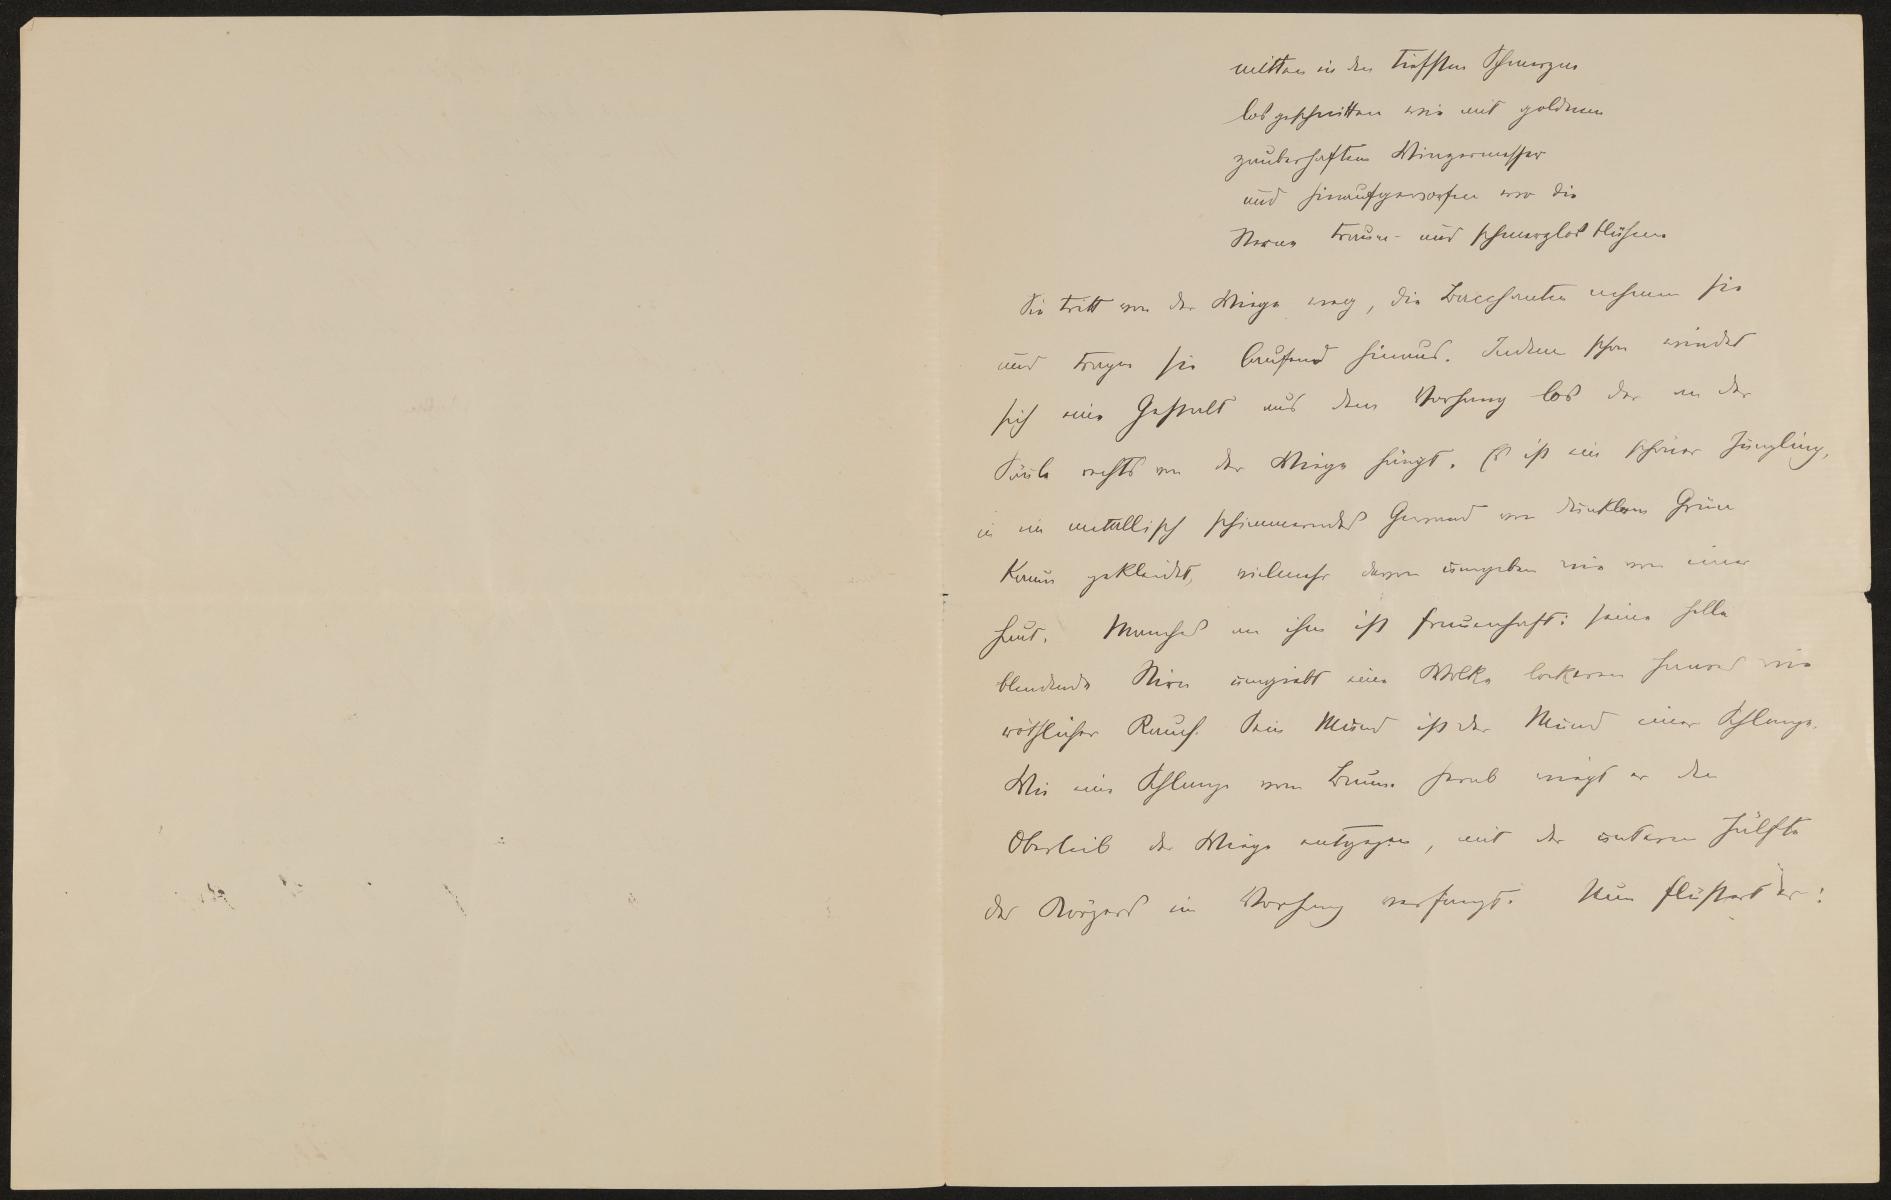 mitten in den tiefsten Schmerzen
losgeschnitten wie mit goldnem
zauberhaftem Winzermesser
und hinaufgeworfen wo die
Sterne traum- und schmerzlos blühen.
Sie tritt von der Wiege weg, die Bacchanten nehmen sie
und tragen sie laufend hinaus. Indem schon windet
sich eine Gestalt aus dem Vorhang los der an der
Säule rechts von der Wiege hängt. Es ist ein schöner Jüngling,
in ein metallisch schimmerndes Gewand von dunklem Grün
kaum gekleidet, vielmehr davon umgeben wie von einer
Haut. Manches an ihm ist frauenhaft: seine helle
blendende Stirn umgiebt eine Wolke lockeren Haares wie
röthlicher Rauch. Sein Mund ist der Mund einer Schlange.
Wie eine Schlange vom Baume herab wiegt er den
Oberleib der Wiege entgegen, mit der unteren Hälfte
des Körpers im Vorhang verfangt. Nun flüstert er: